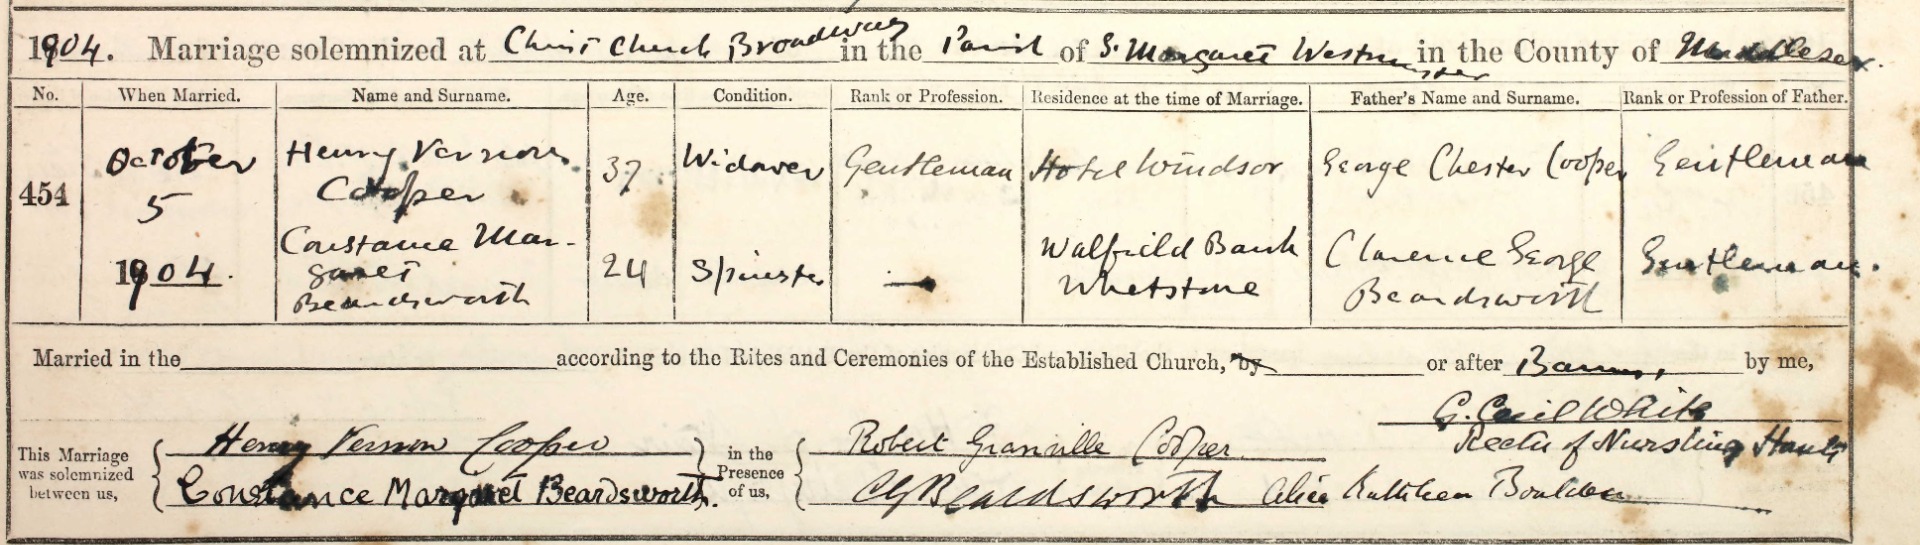 1904. Marriage solemnized at Christ Church Broadway in the Parish of S. Margaret Westminster in the County of Middlesex.
No. When Married. Name and Surname. Age. Condition. Rank or Profession. Residence at the time of Marriage. Father's Name and Surname. Rank or Profession of Father.
454 October 5 1904. Henry Vernon Cooper 37 Widower Gentleman Hotel Windsor George Chester Cooper Gentleman
Constance Mar-
garet
Beardsworth 24 Spinster — Walfield Bank Whetstone Clarence George Beardsworth Gentleman.
Married in the according to the Rites and Ceremonies of the Established Church, by or after Banns, by me,
G. Cecil White
Rector of Nursling Hants
This Marriage was solemnized between us, Henry Vernon Cooper in the Presence of us, Robert Granville Cooper
Constance Margaret Beardsworth. CGBeardsworth Alice Kathleen Boulden